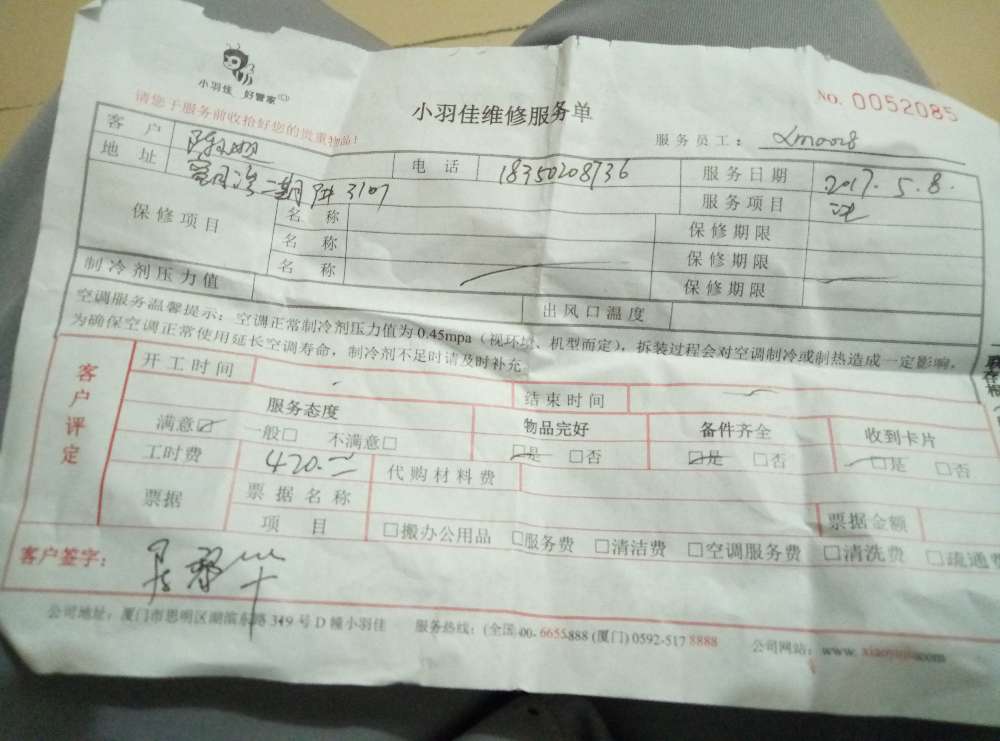 小羽佳 好管家
请您于服务前收拾好您的贵重物品!
小羽佳维修服务单
NO. 0052085
服务员工:
客户
电话 18350208736
服务日期 2017.5.8.
地址 二期 3107
服务项目
保修项目
名称 保修期限
名称 保修期限
名称 保修期限
制冷剂压力值 出风口温度
空调服务温馨提示:空调正常制冷剂压力值为0.45mpa(视环境、机型而定),拆装过程会对空调制冷或制热造成一定影响,
为确保空调正常使用延长空调寿命,制冷剂不足时请及时补充
客户评定
开工时间 结束时间
服务态度 物品完好 备件齐全 收到卡片
满意☑ 一般□ 不满意□ ☑是 □否 ☑是 □否 ☑是 □否
工时费 420. 代购材料费
票据 票据名称 票据金额
项目 □搬办公用品 □服务费 □清洁费 □空调服务费 □清洗费 □疏通费
客户签字:
公司地址:厦门市思明区湖滨东路319号D幢小羽佳 服务热线:(全国)400-6655888 (厦门) 0592-5178888 公司网站:www.